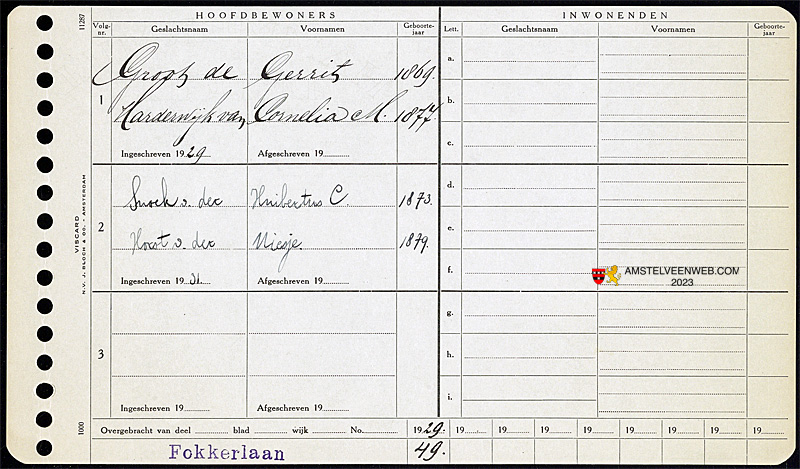 11287
HOOFDBEWONERS
INWONENDEN
Volg-nr. Geslachtsnaam Voornamen Geboorte-jaar Lett. Geslachtsnaam Voornamen Geboorte-jaar
1
Groot de Gerrit 1869.
Harderwijk van Cornelia M. 1877.
Ingeschreven 1929 Afgeschreven 19
a.
b.
c.
2
Snoek v. der Huibertus C 1873.
Horst v. der Niesje 1879.
Ingeschreven 1931. Afgeschreven 19
d.
e.
f.
AMSTELVEENWEB.COM
2023
3
Ingeschreven 19 Afgeschreven 19
g.
h.
i.
VISCARD
N.V. J. BLOCH & CO. - AMSTERDAM
1000
Overgebracht van deel blad wijk No. 1929. 19 19 19 19 19 19 19 19
Fokkerlaan 49.